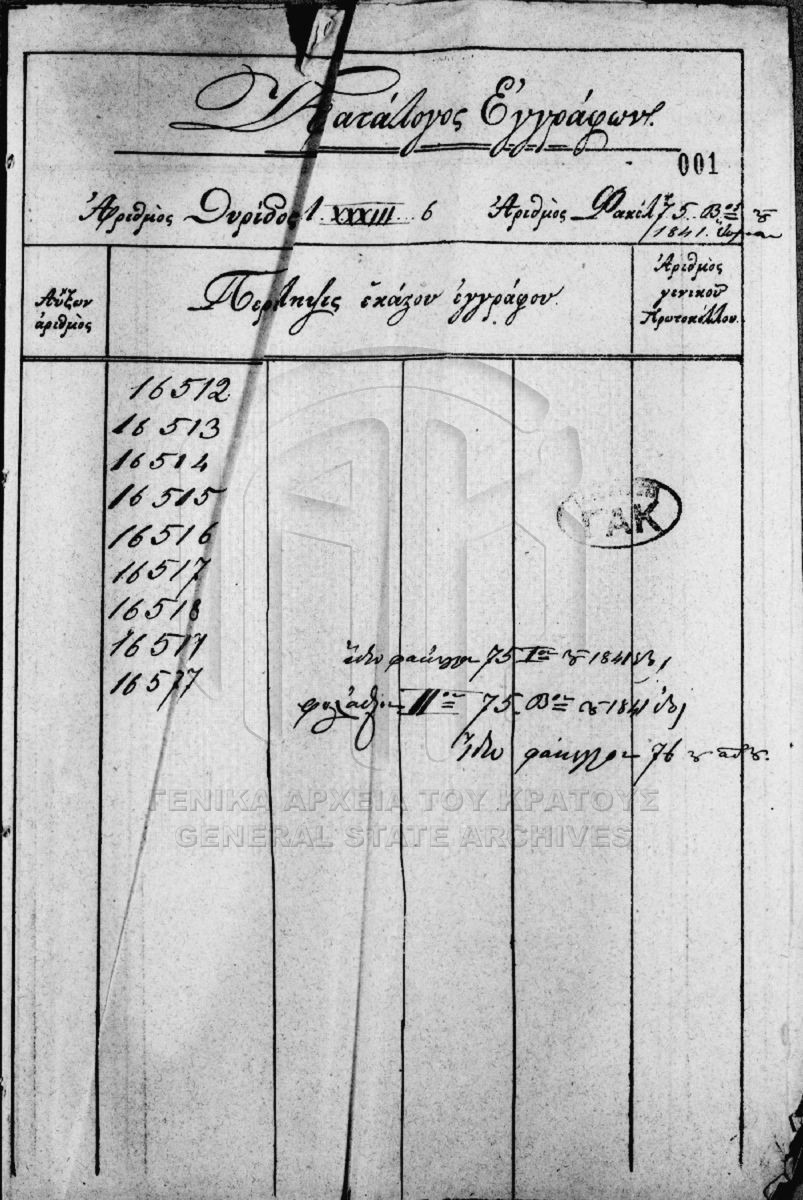 Κατάλογος Ἐγγράφων.
001
Ἀριθμὸς Θυρίδος 1 XXXIII 6 Ἀριθμὸς Φακέλ 75. Βον
1841.
Αὔξων ἀριθμὸς
Περίληψις ἑκάστου ἐγγράφου.
Ἀριθμὸς γενικοῦ Πρωτοκόλλου.
16512
16513
16514
16515
16516
16517
16518
16519
16577
ΓΑΚ
φάκελλον 75 Iον 1841
IIον 75. Βον 1841
φάκελλον 76
ΓΕΝΙΚΑ ΑΡΧΕΙΑ ΤΟΥ ΚΡΑΤΟΥΣ
GENERAL STATE ARCHIVES